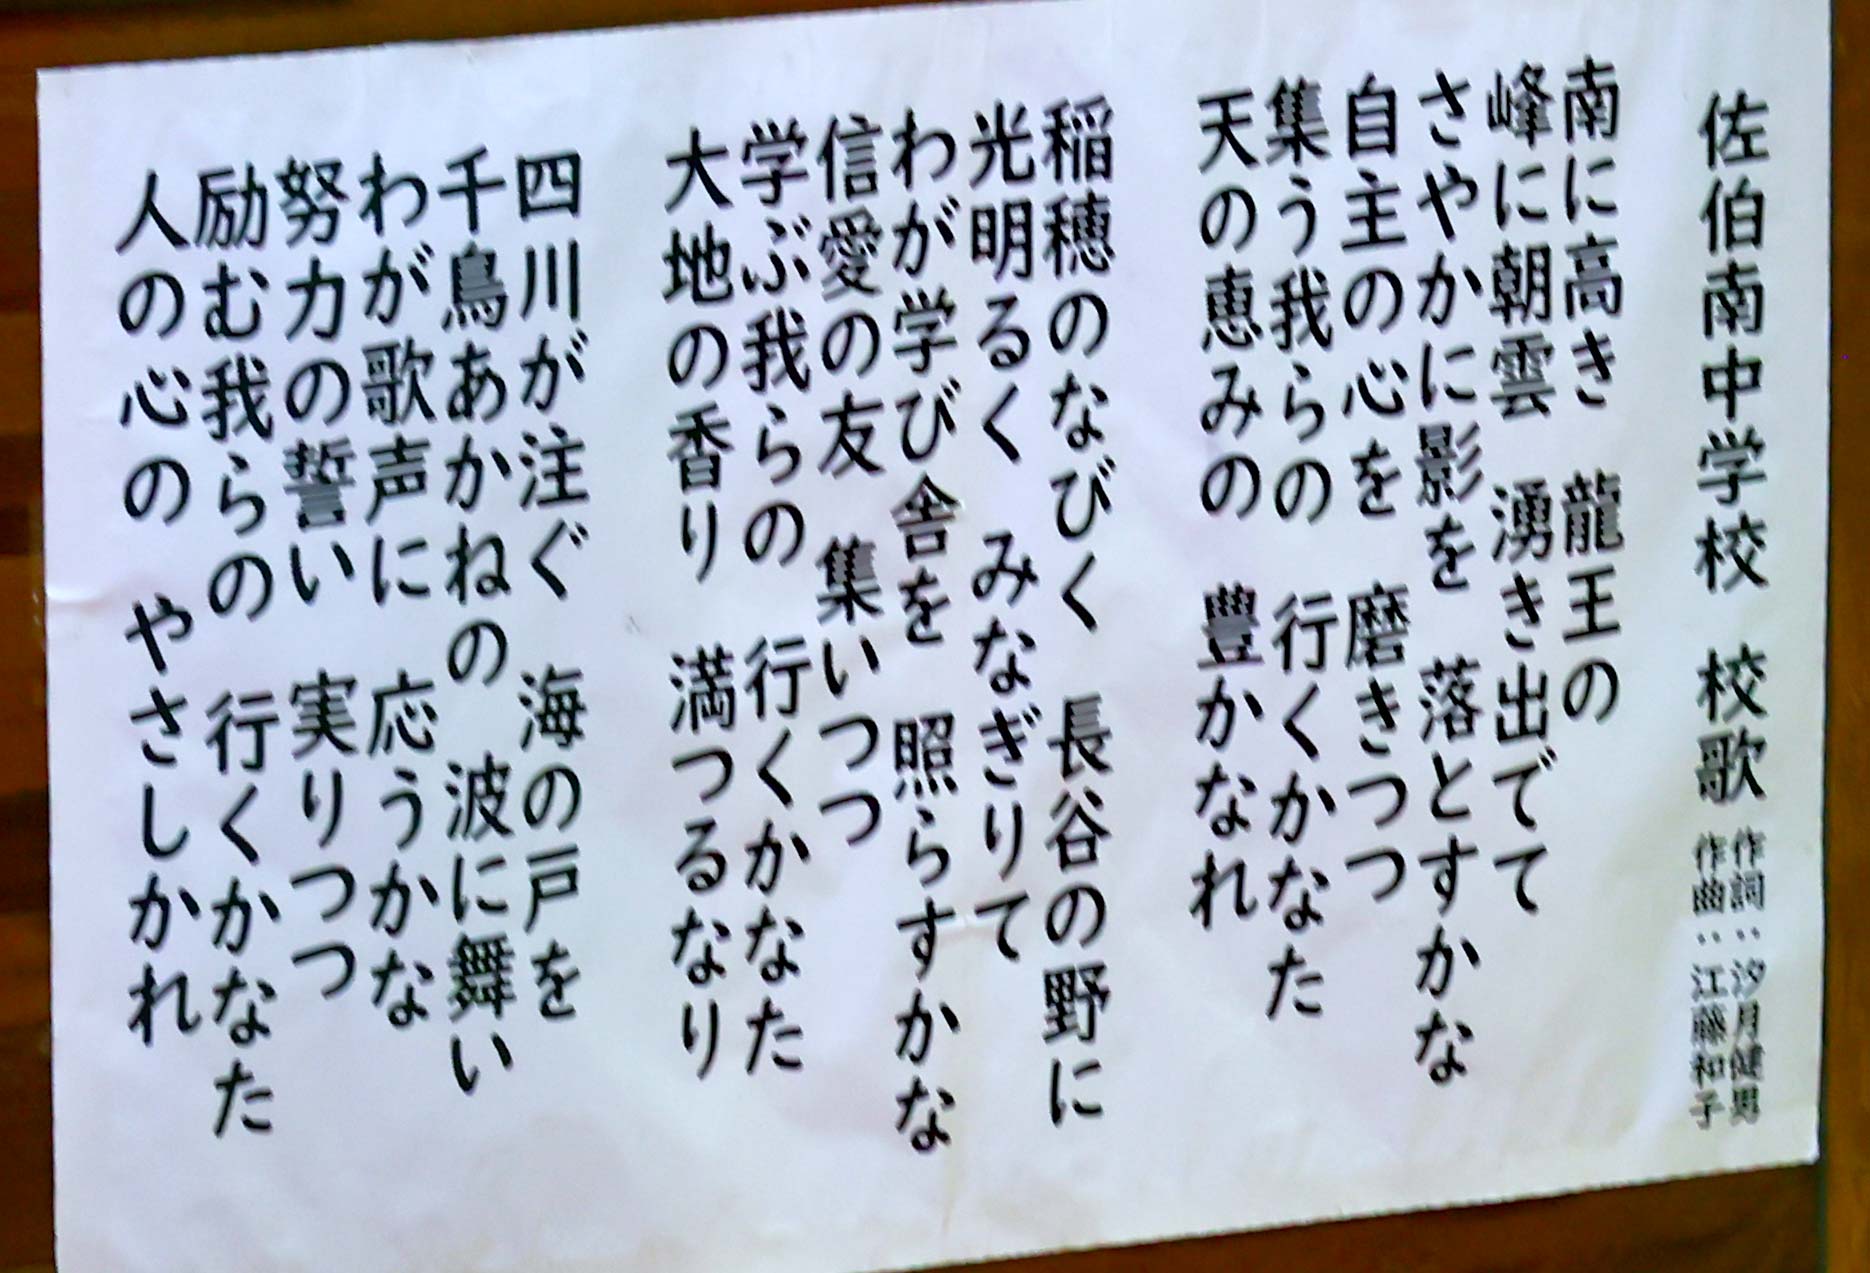 佐伯南中学校 校歌
作詞：汐月健男
作曲：江藤和子
南に高き 龍王の
峰に朝雲 湧き出でて
さやかに影を 落とすかな
自主の心を 磨きつつ
集う我らの 行くかなた
天の恵みの 豊かなれ
稲穂のなびく 長谷の野に
光明るく みなぎりて
わが学び舎を 照らすかな
信愛の友 集いつつ
学ぶ我らの 行くかなた
大地の香り 満つるなり
四川が注ぐ 海の戸を
千鳥あかねの 波に舞い
わが歌声に 応うかな
努力の誓い 実りつつ
励む我らの 行くかなた
人の心の やさしかれ